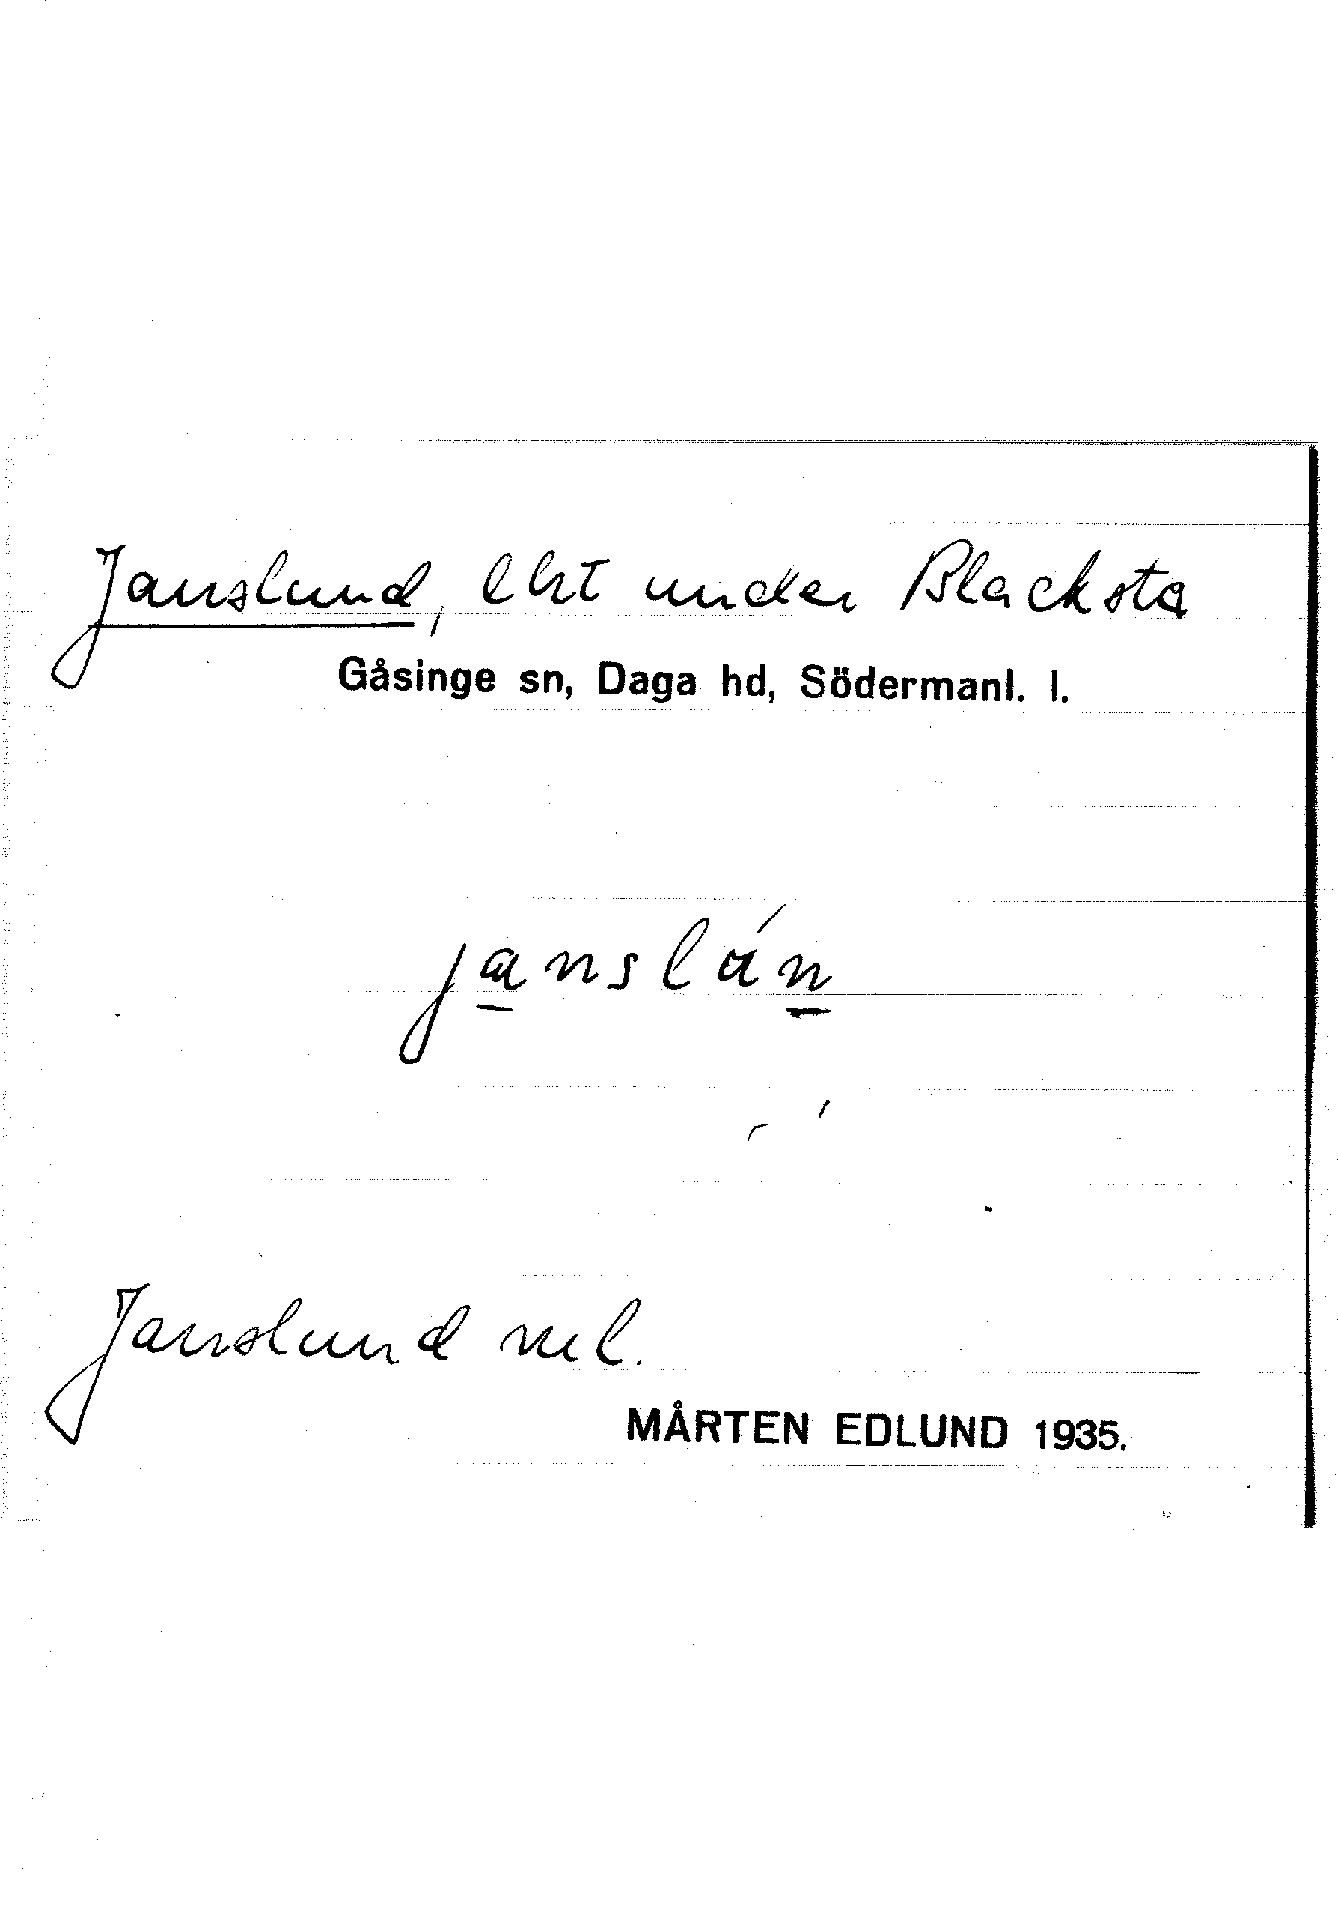 Janslund, lht under Blacksta
Gåsinge sn, Daga hd, Södermanl. l.
janslán
Janslund rul.
MÅRTEN EDLUND 1935.